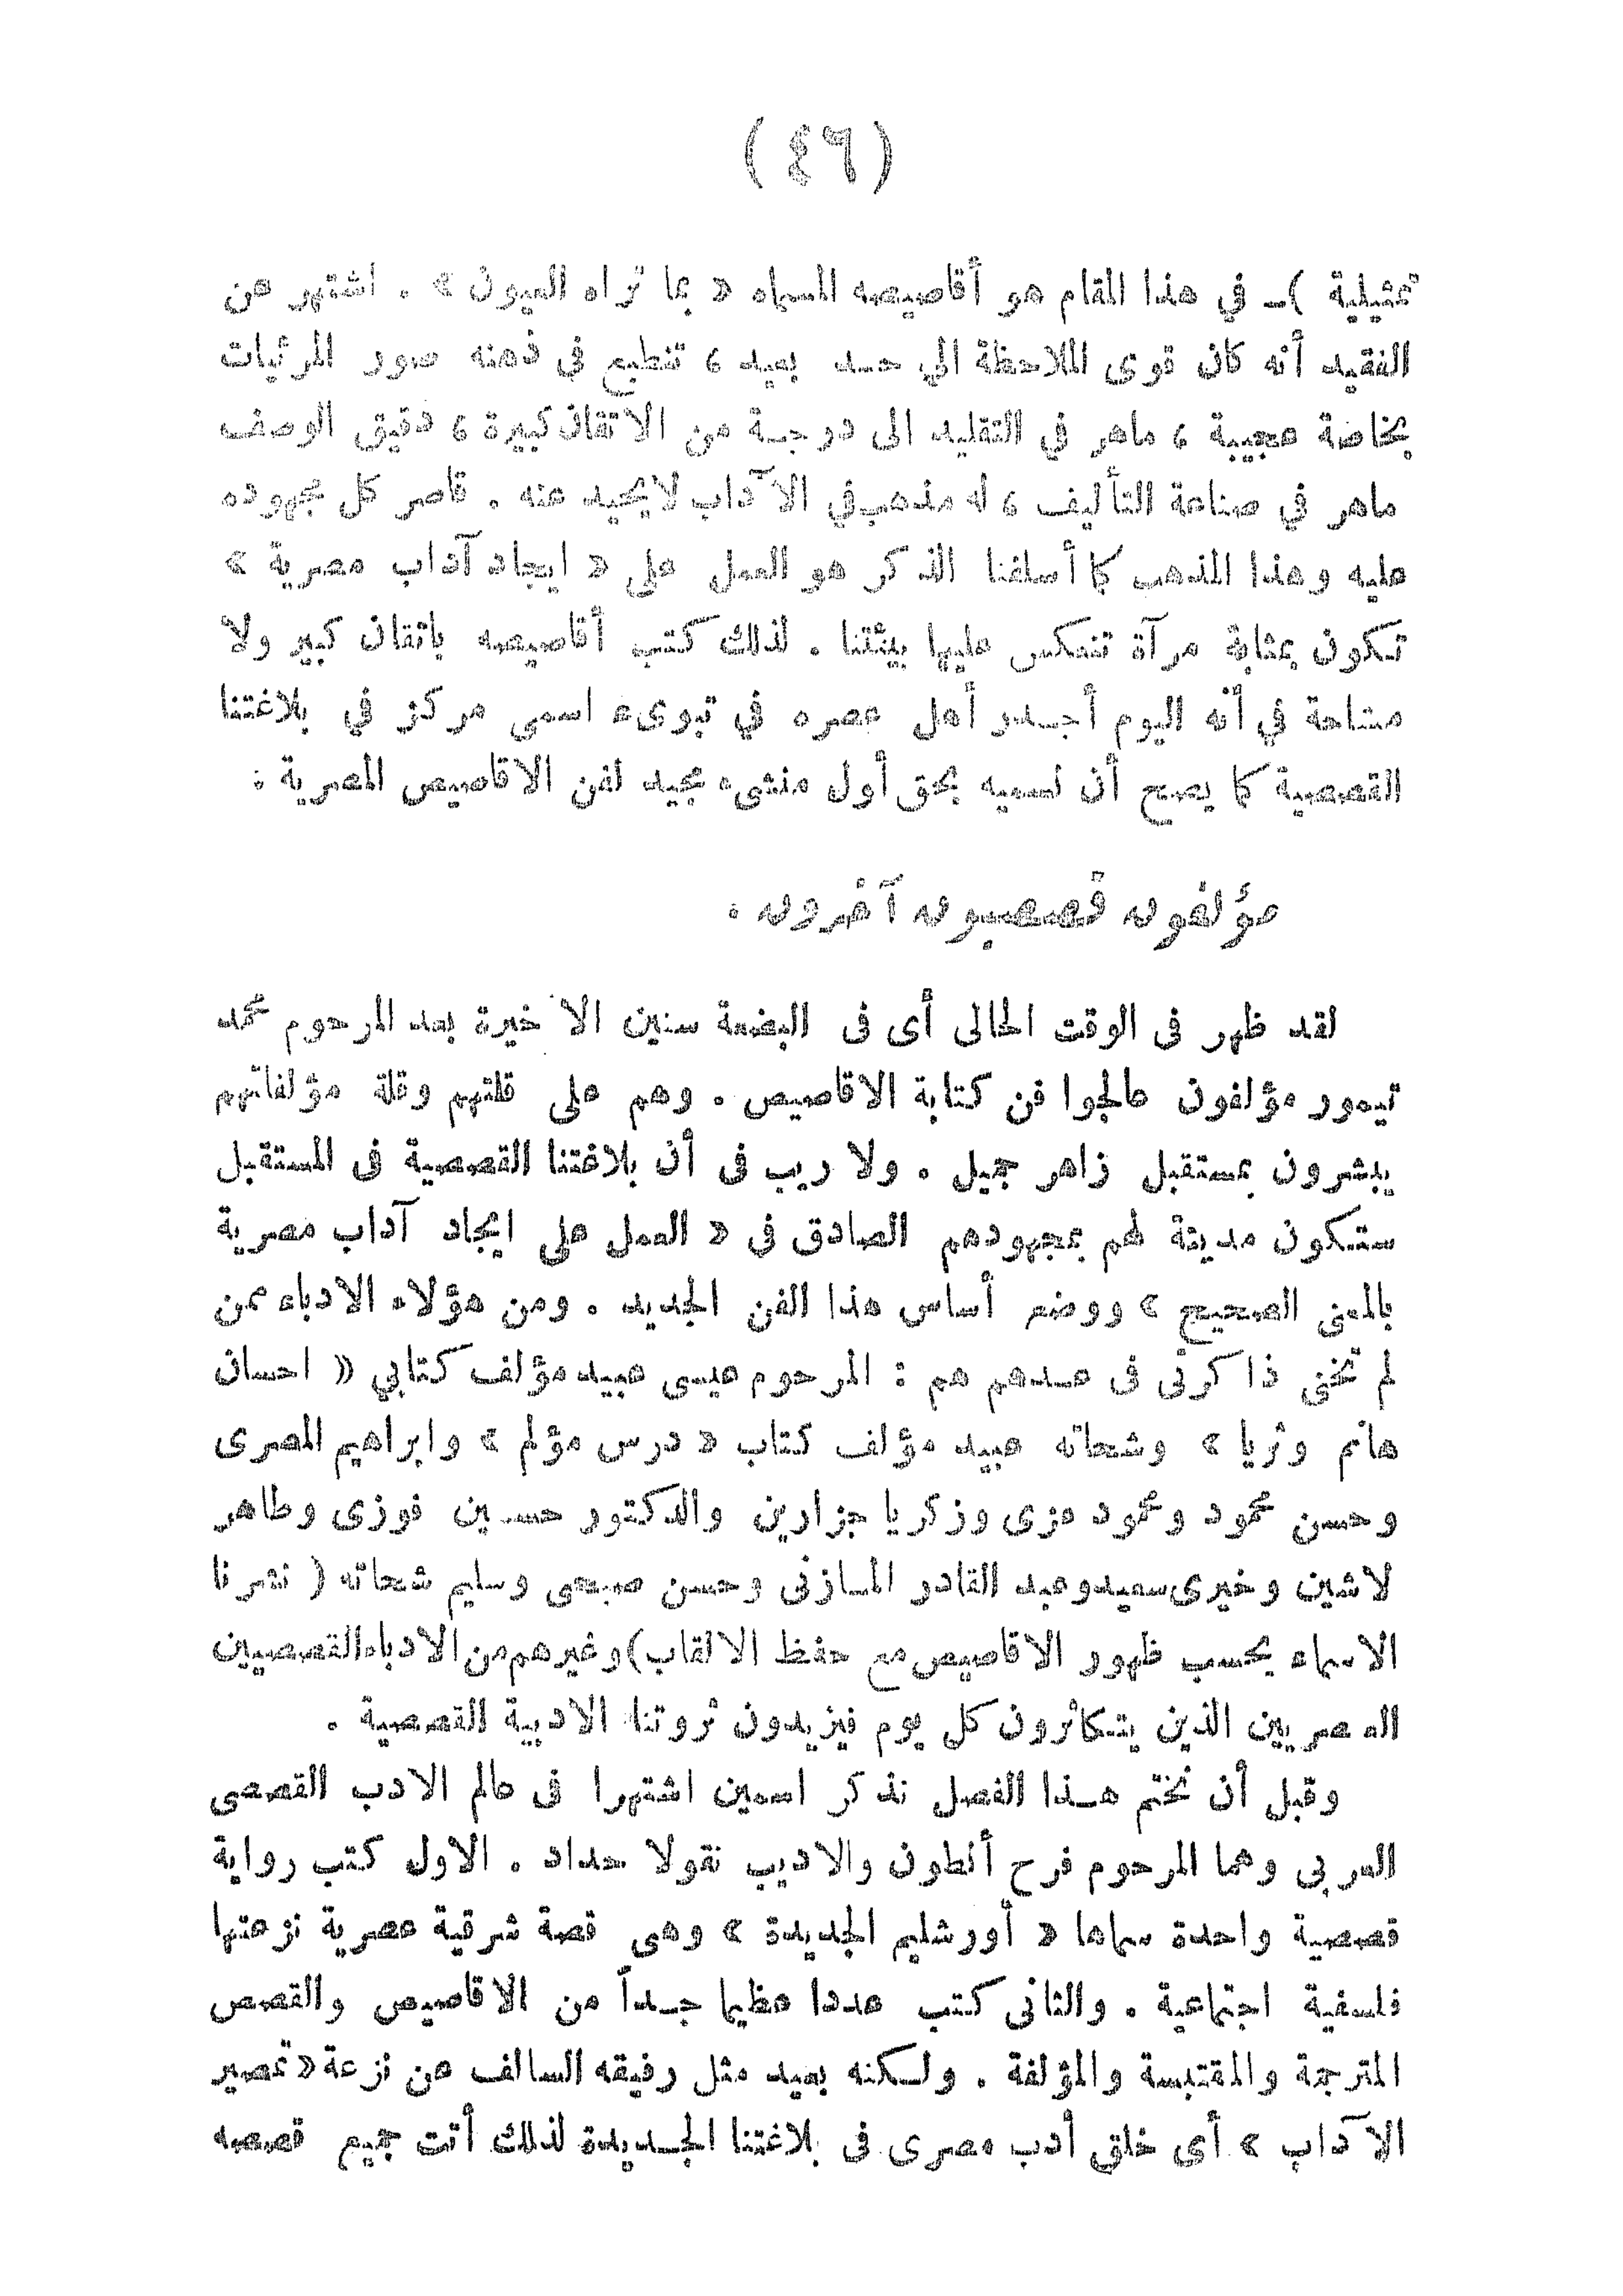 (٤٦)
تمثيلية ) ــ في هذا المقام هو أقاصيصه المسماه « بما تراه العيون » . اشتهر عن
الفقيد أنه كان قوى الملاحظة الي حد بعيد ، تنطبع في ذهنه صور المرئيات
بخاصة عجيبة ، ماهر في التقليد الى درجة من الاتقان كبيرة ، دقيق الوصف
ماهر في صناعة التأليف ، له مذهب في الآداب لايحيد عنه . قاصر كل مجهوده
عليه وهذا المذهب كما أسلفنا الذكر هو العمل على « ايجاد آداب مصرية »
تكون بمثابة مرآة تنعكس عليها بيئتنا . لذلك كتب أقاصيصه باتقان كبير ولا
مشاحة في أنه اليوم أجدر أهل عصره في تبوىء اسمى مركز في بلاغتنا
القصصية كما يصح أن نسميه بحق أول منشىء مجيد لفن الاقاصيص المصرية .
مؤلفون قصصيون آخرون .
لقد ظهر فى الوقت الحالى أى فى البضعة سنين الأخيرة بعد المرحوم محمد
تيمور مؤلفون عالجوا فن كتابة الاقاصيص . وهم على قلتهم وقلة مؤلفاتهم
يبشرون بمستقبل زاهر جميل . ولا ريب فى أن بلاغتنا القصصية فى المستقبل
ستكون مدينة لهم بمجهودهم الصادق في « العمل على ايجاد آداب مصرية
بالمعنى الصحيح » ووضع أساس هذا الفن الجديد . ومن هؤلاء الادباء ممن
لم تخنى ذاكرتى فى عدهم هم : المرحوم عيسى عبيد مؤلف كتابي « احسان
هانم وثريا » وشحاته عبيد مؤلف كتاب « درس مؤلم » وابراهيم المصرى
وحسن محمود ومحمود عزى وزكريا جزارين والدكتور حسين فوزى وطاهر
لاشين وخيرى سعيد وعبد القادر المازنى وحسن صبحى وسليم شحاته ( نشرنا
الاسماء بحسب ظهور الاقاصيص مع حفظ الالقاب) وغيرهم من الادباء القصصيين
العصريين الذين يتكاثرون كل يوم فيزيدون ثروتنا الادبية القصصية .
وقبل أن نختم هذا الفصل نذكر اسمين اشتهرا فى عالم الادب القصصى
العربى وهما المرحوم فرح أنطون والاديب نقولا حداد . الاول كتب رواية
قصصية واحدة سماها « أورشليم الجديدة » وهى قصة شرقية عصرية نزعتها
فلسفية اجتماعية . والثانى كتب عددا عظيما جداً من الاقاصيص والقصص
المترجمة والمقتبسة والمؤلفة . ولكنه بعيد مثل رفيقه السالف عن نزعة « تمصير
الآداب » أى خلق أدب مصرى فى بلاغتنا الجديدة لذلك أتت جميع قصصه